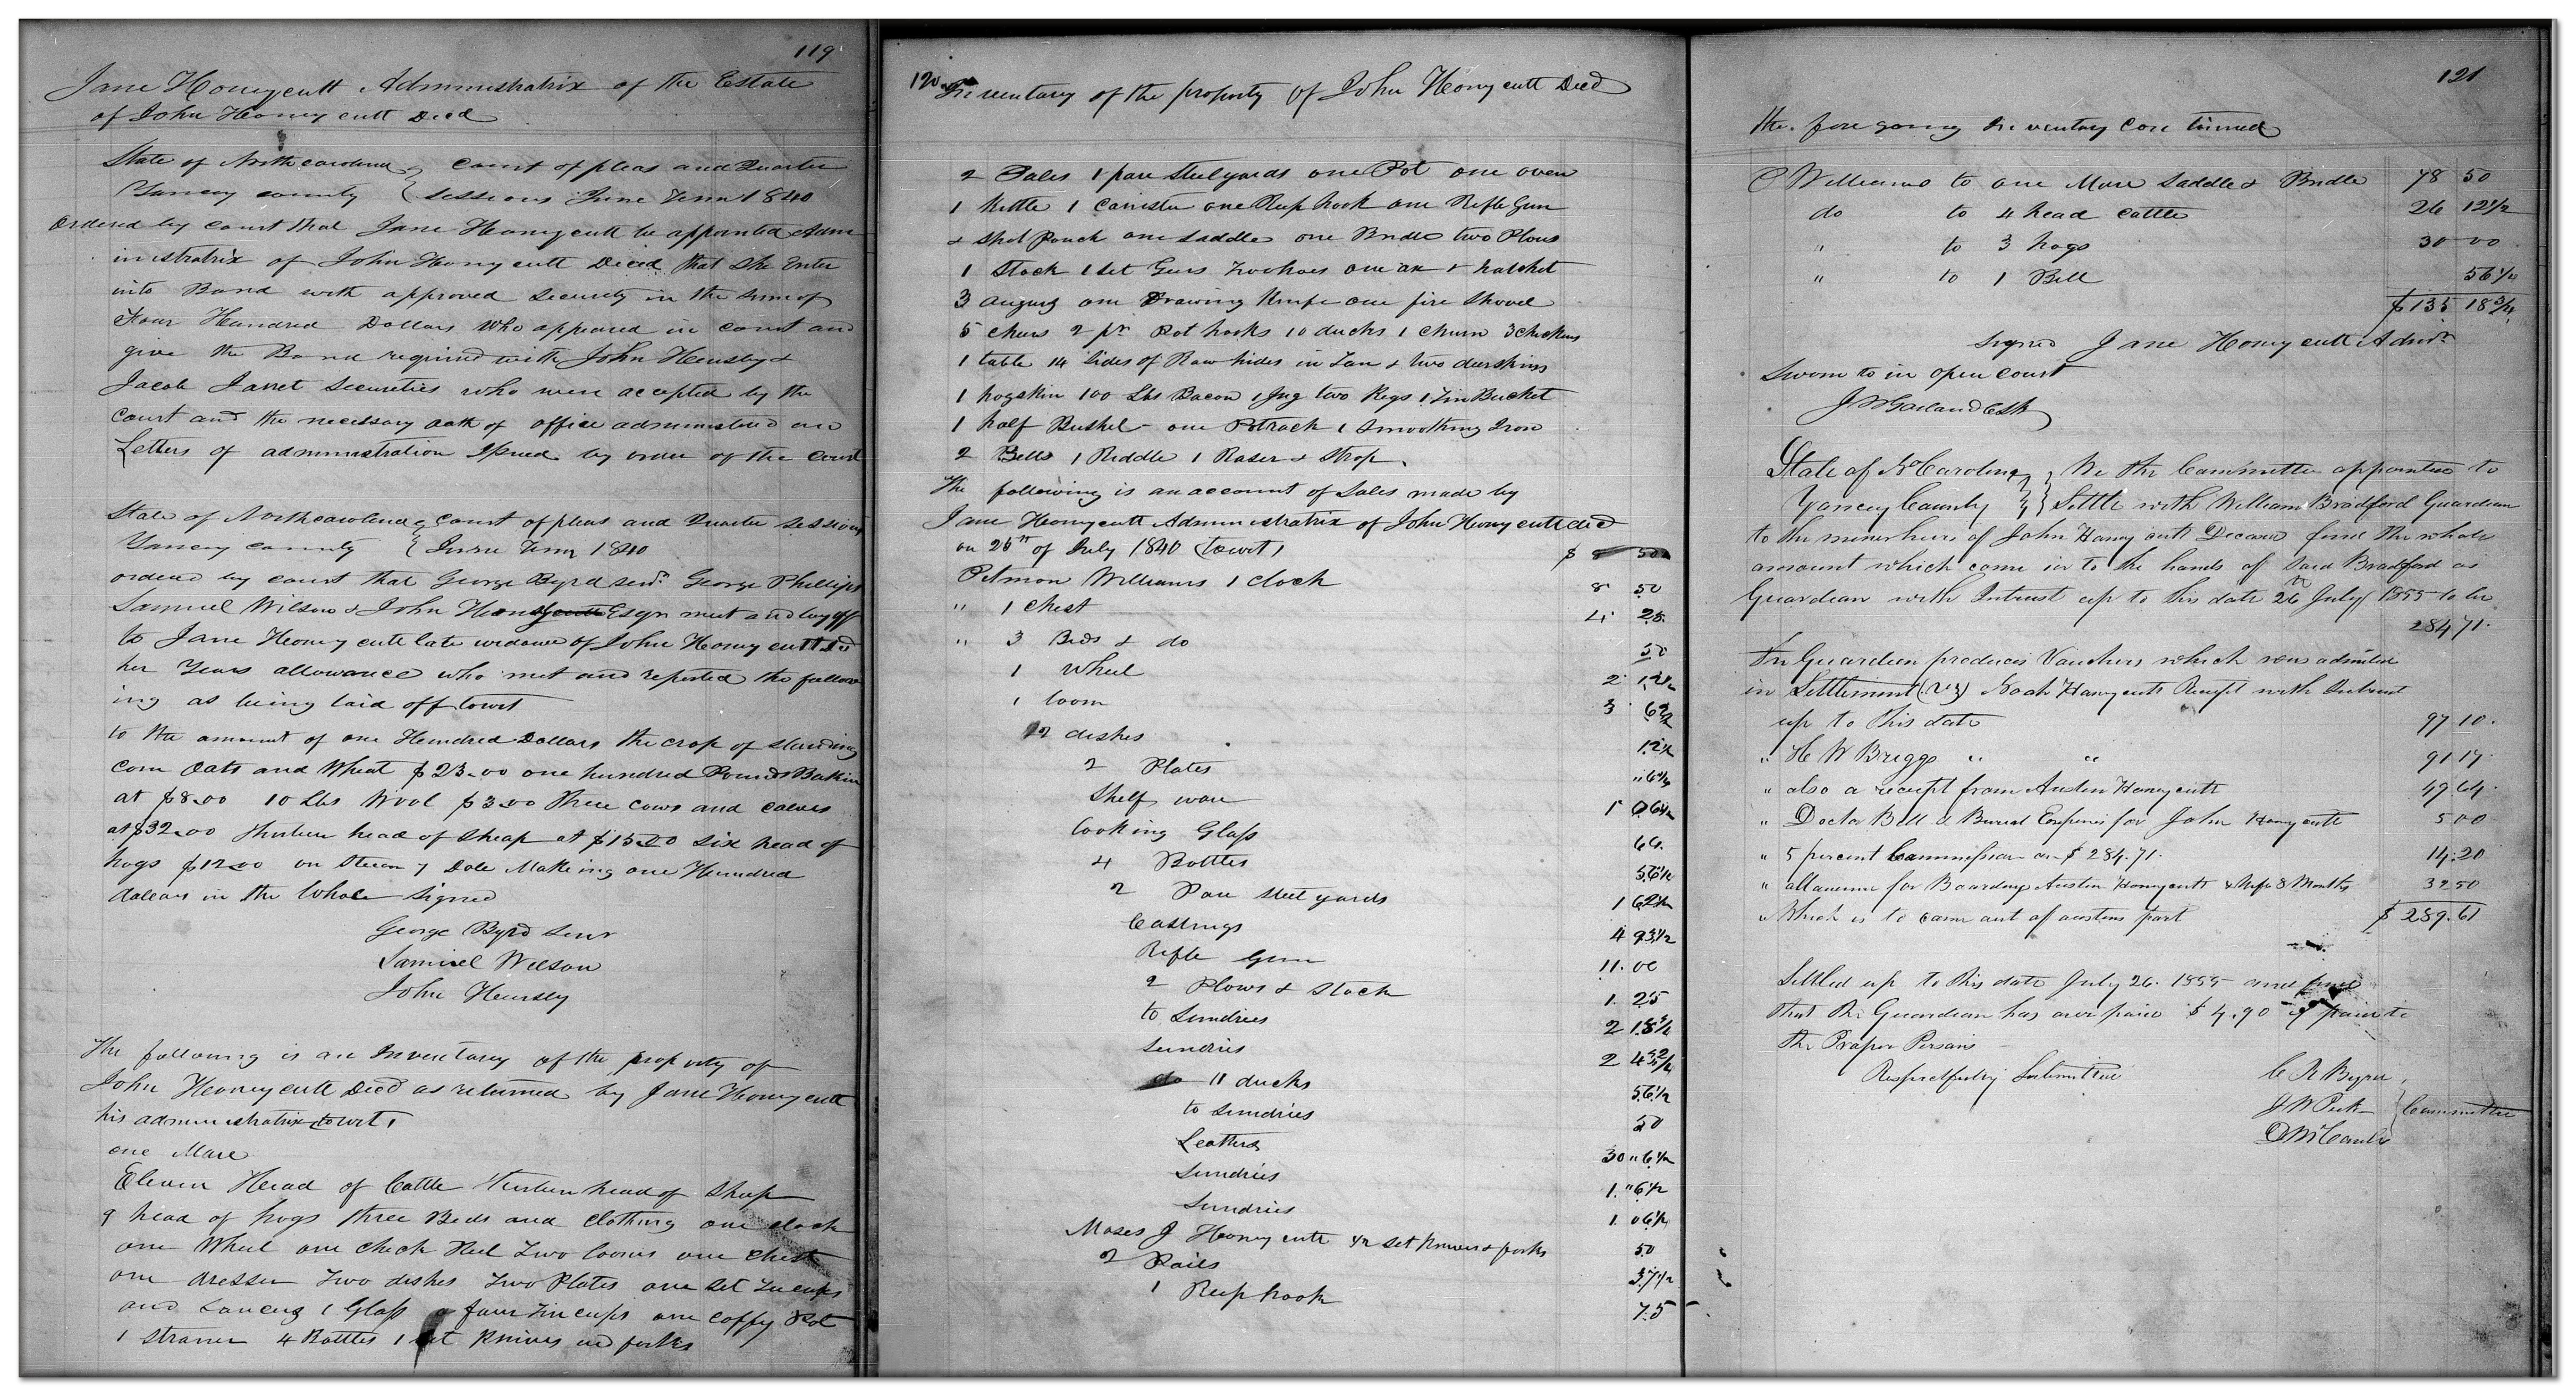 119
Jane Honeycutt Administratrix of the Estate
of John Honeycutt Decd
State of North carolina } Court of pleas and Quarter
Yancey county } sessions June Term 1840
ordered by court that Jane Honeycutt be appointed Adm
inistratrix of John Honeycutt Decd that she Enter
into Bond with approved security in the sum of
Four Hundred Dollars who appeared in court and
give the Bond required with John Hensley &
Jacob Jarret securities who were accepted by the
court and the necessary oath of office administered and
Letters of administration Issued by order of the court
State of North carolina } court of pleas and Quarter sessions
Yancey county } June Term 1840
ordered by court that George Byrd senr George Phillips
Samuel Wilson & John Esqr meet and lay off
to Jane Honeycutt late widow of John Honeycutt Decd
her Years allowance who met and reported the follow
ing as being laid off towit
to the amount of one Hundred Dollars the crop of standing
corn Oats and Wheat $23.00 one hundred Pounds Bakin
at $8.00 10 Lbs Wool $3.00 three cows and calves
at $32.00 thirteen head of sheap at $15.00 six head of
hogs $12.00 on Making one Hundred
dolears in the Whole signed
George Byrd Senr
Samuel Wilson
John Hensley
The following is an Inventary of the property of
John Honeycutt Decd as returned by Jane Honeycutt
his administratrix towit,
one Mare
Eleven Head of Cattle thirteen head of sheap
9 head of hogs three Beds and clothing one clock
one Wheel one check Reel Two looms one chest
one dresser Two dishes Two Plates one set Teacups
and saucers 1 Glass four Tincups one coffy Pot
1 strainer 4 Bottles 1 set knives and forks
120
Inventary of the property of John Honeycutt Decd
2 Pales 1 pare steelyards one Pot one oven
1 Kettle 1 Canister one Reep hook one Rifle Gun
& shot Pouch one saddle one Bridle two Plows
1 Stock 1 set Gers Two hoes one ax & hatchet
3 augurs one Drawing Knife one fire shovel
5 chers 2 pr Pot hooks 10 ducks 1 churn 3 chickens
1 table 14 sides of Raw hides in Tan & two deerskins
1 hogskin 100 Lbs Bacon 1 Jug two Kegs 1 Tin Bucket
1 half Bushel one Potrack 1 Smoothing Iron
2 Bells 1 Riddle 1 Raser & Strop.
The following is an account of sales made by
Jane Honeycutt Administratrix of John Honeycutt decd
on 25th of July 1840 (towit)
Pitmon Williams 1 clock 8 50
" 1 chest 4 25
" 3 Beds & do 50
1 wheel 2 12½
1 loom 3 62½
2 dishes 12½
2 Plates " 6¼
Shelf ware 1 06¼
Cooking Glass 60
4 Bottles 56¼
2 Pare steelyards 1 62½
Castings 4 93½
Rifle Gun 11.00
2 Plows & stock 1.25
to Sundries 2 18¾
Sundries 2
do 11 ducks 56½
to Sundries 50
Leather 30 " 6¼
Sundries 1. " 6½
Sundries 1 06¼
Moses J Honeycutt ½ set knives & forks 50
2 Pails 37½
1 Reep hook 75
121
the fore going Inventary Continued
P Williams to one Mare Saddle & Bridle 78 50
do to 4 head cattle 26 12½
" to 3 hogs 30 00
" to 1 Bell 56¼
$135 18¾
Signed Jane Honeycutt Admr
Sworn to in open court
J W Garland Clk
State of No Carolina } We the Committee appointed to
Yancey County } Settle with William Bradford Guardian
to the minor heirs of John Honeycutt Decease find the whole
amount which come in to the hands of Said Bradford as
Guardian with Intrust up to this date 26th July 1855 to be
284 71.
The Guardian produces Vouchers which was admited
in Settlement (viz) Noah Honeycutts Receipt with Intrust
up to this date 97 10.
" H W Briggs " " 91 17
" also a receipt from Austin Honeycutt 49.64.
" Doctor Bill & Burial Expenses for John Honeycutt 5 00
" 5 percent Commission on $284.71. 14.20
" allowance for Boarding Austin Honeycutt & Wife 8 Months 32 50
" Which is to come out of austins part $289.61
Settled up to this date July 26. 1855 and find
that the Guardian has over paid $4.90 if paid to
the Proper Persons
Respectfully Submitted C R Byrd
J W Peek } Committee